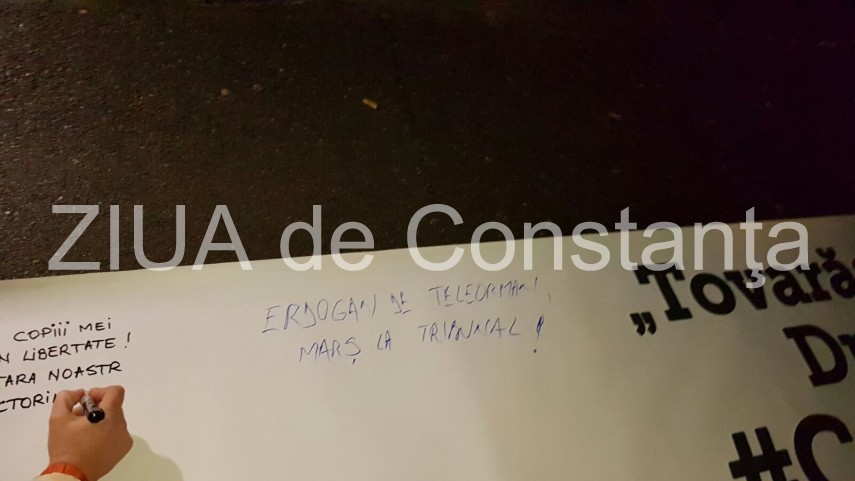 ZIUA de Constanţa
COPIII MEI
N LIBERTATE!
TARA NOASTR
CTORI
ERDOGAN DE TELEORMAN,
MARȘ LA TRIBUNAL!
„Tovară
D
#C